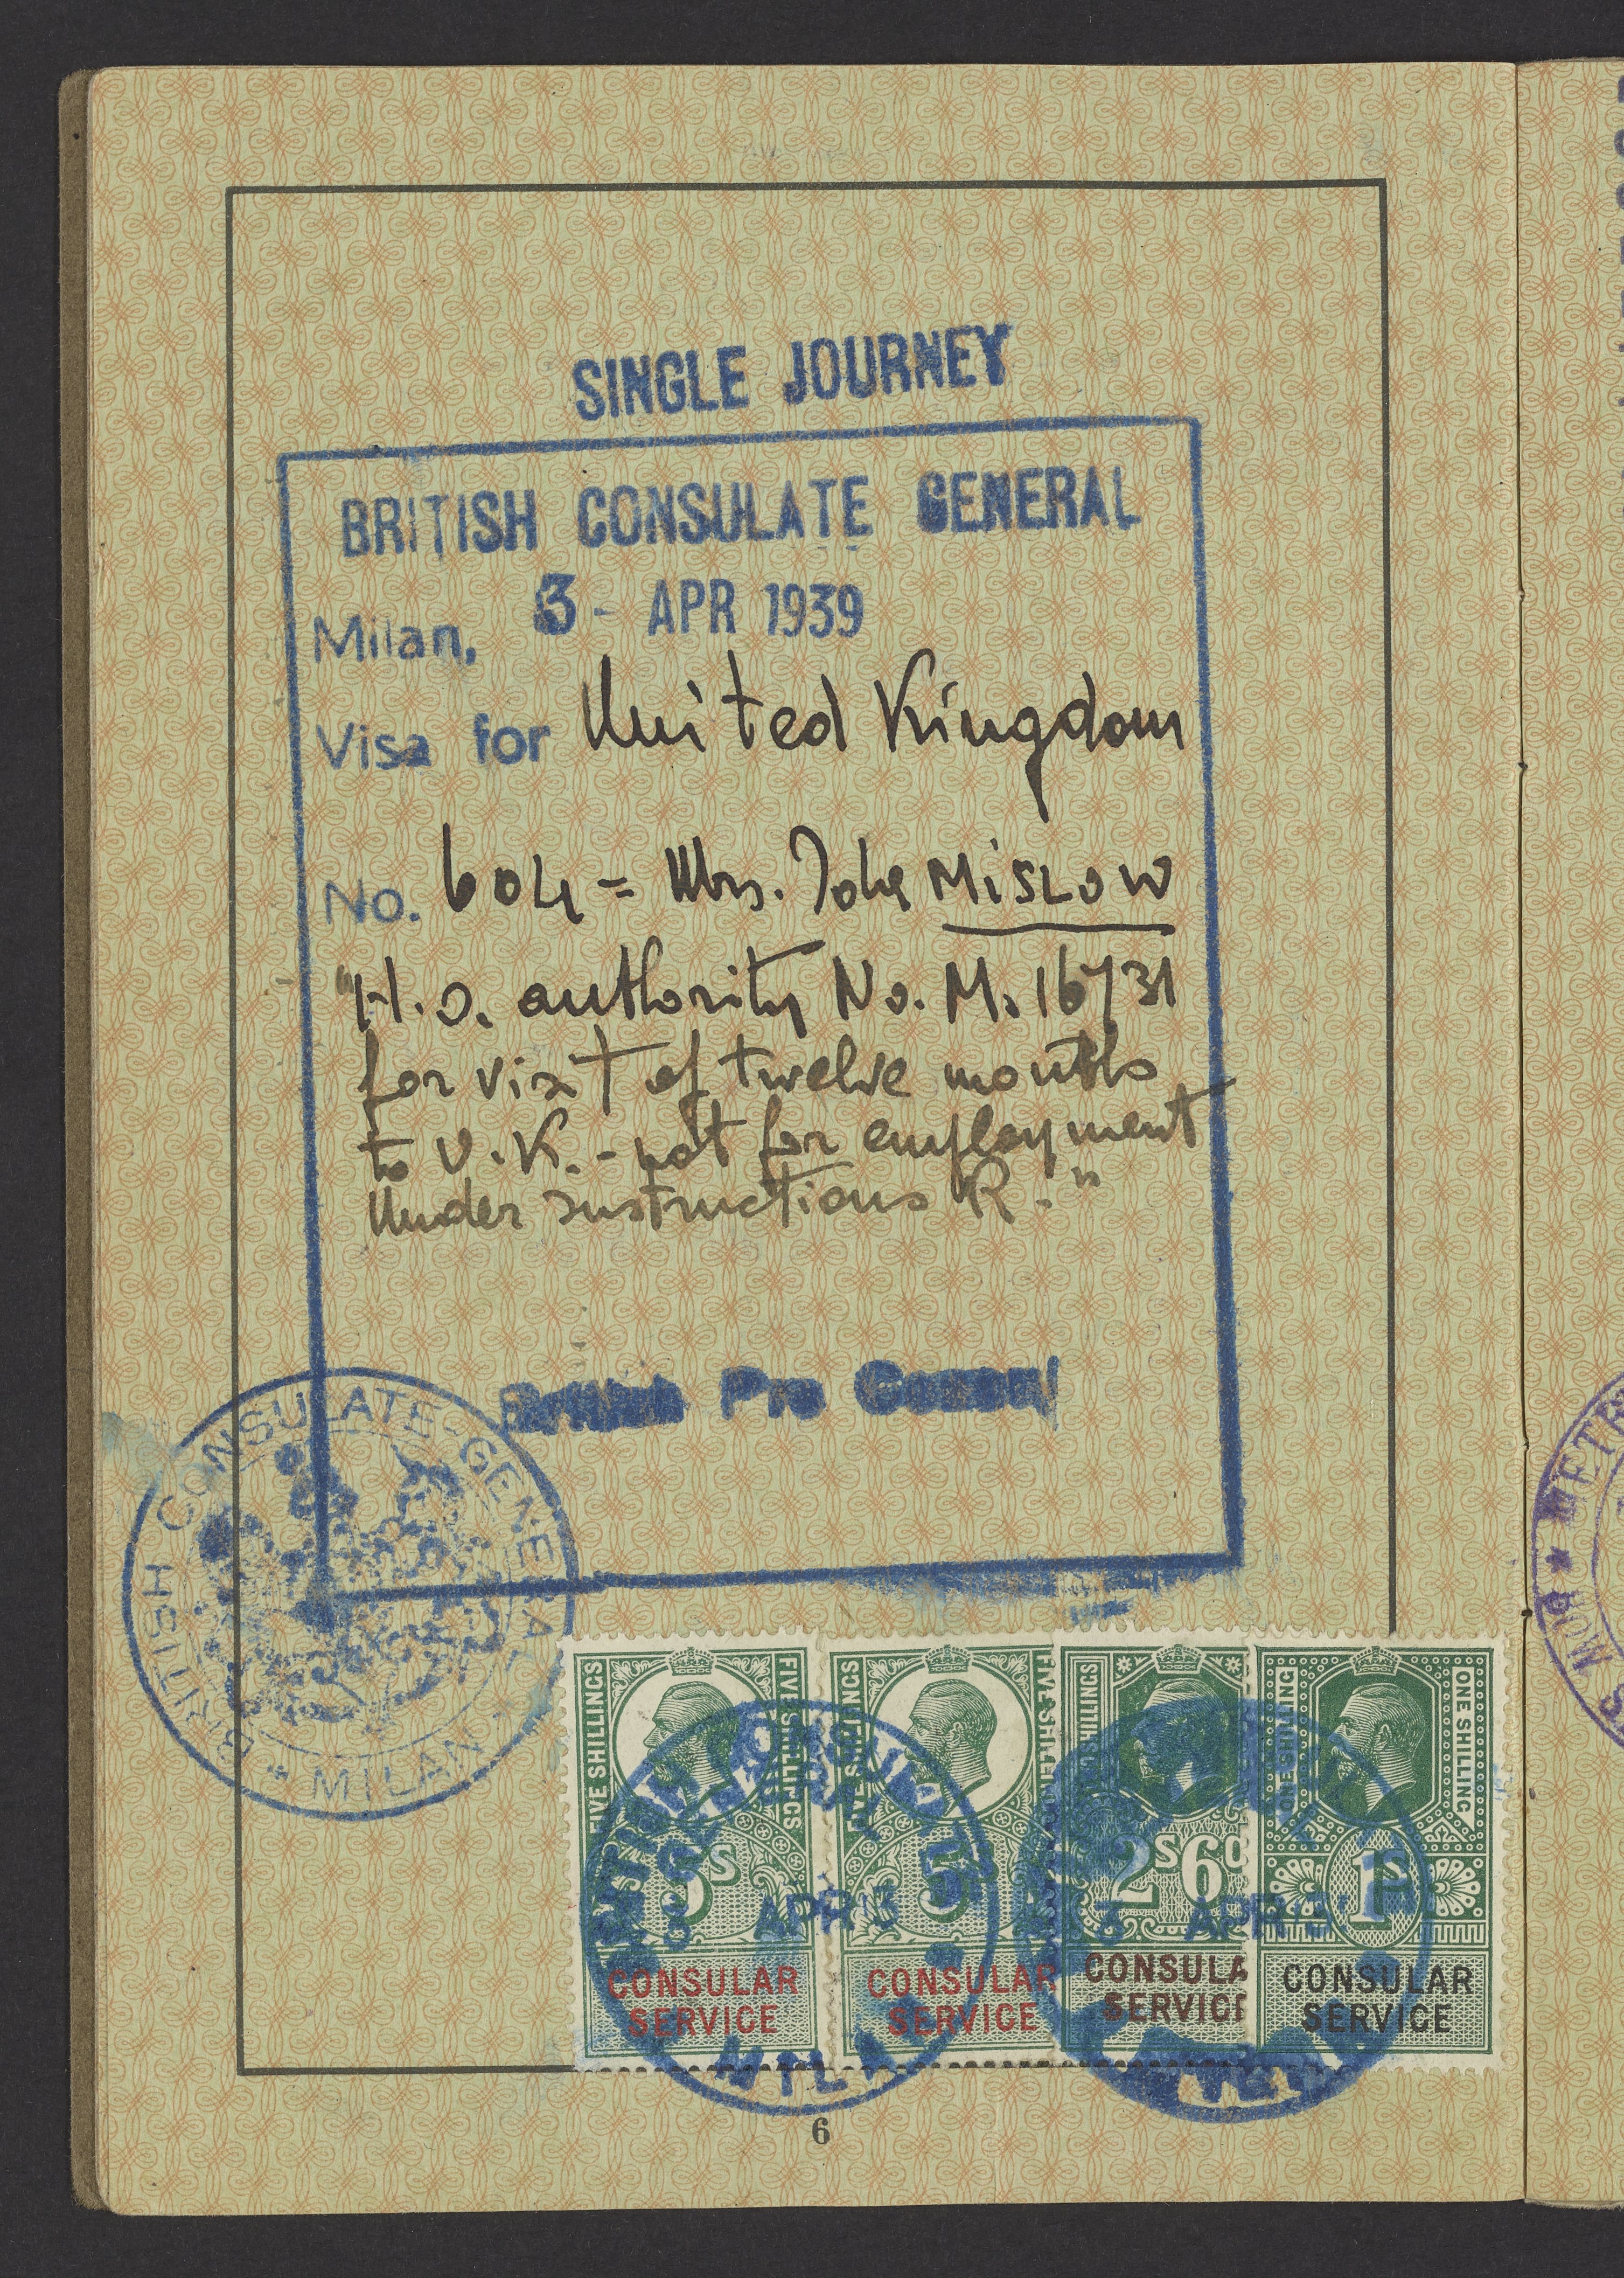 SINGLE JOURNEY
BRITISH CONSULATE GENERAL
Milan, 3 - APR 1939
Visa for United Kingdom
No. 604 = Mrs. MISLOW
"H.O. authority No. M. 16731
for visit of twelve months
to U.K. - not for employment
Under instructions R."
British Pro Consul
BRITISH CONSULATE-GENERAL
* MILAN *
FIVE SHILLINGS FIVE SHILLINGS FIVE SHILLINGS FIVE SHILLINGS SHILLINGS ONE SHILLING ONE SHILLING
5S 5 2S6D 1S
APR 3 APR
CONSULAR CONSULAR CONSULA CONSULAR
SERVICE SERVICE SERVICE SERVICE
MILA
6